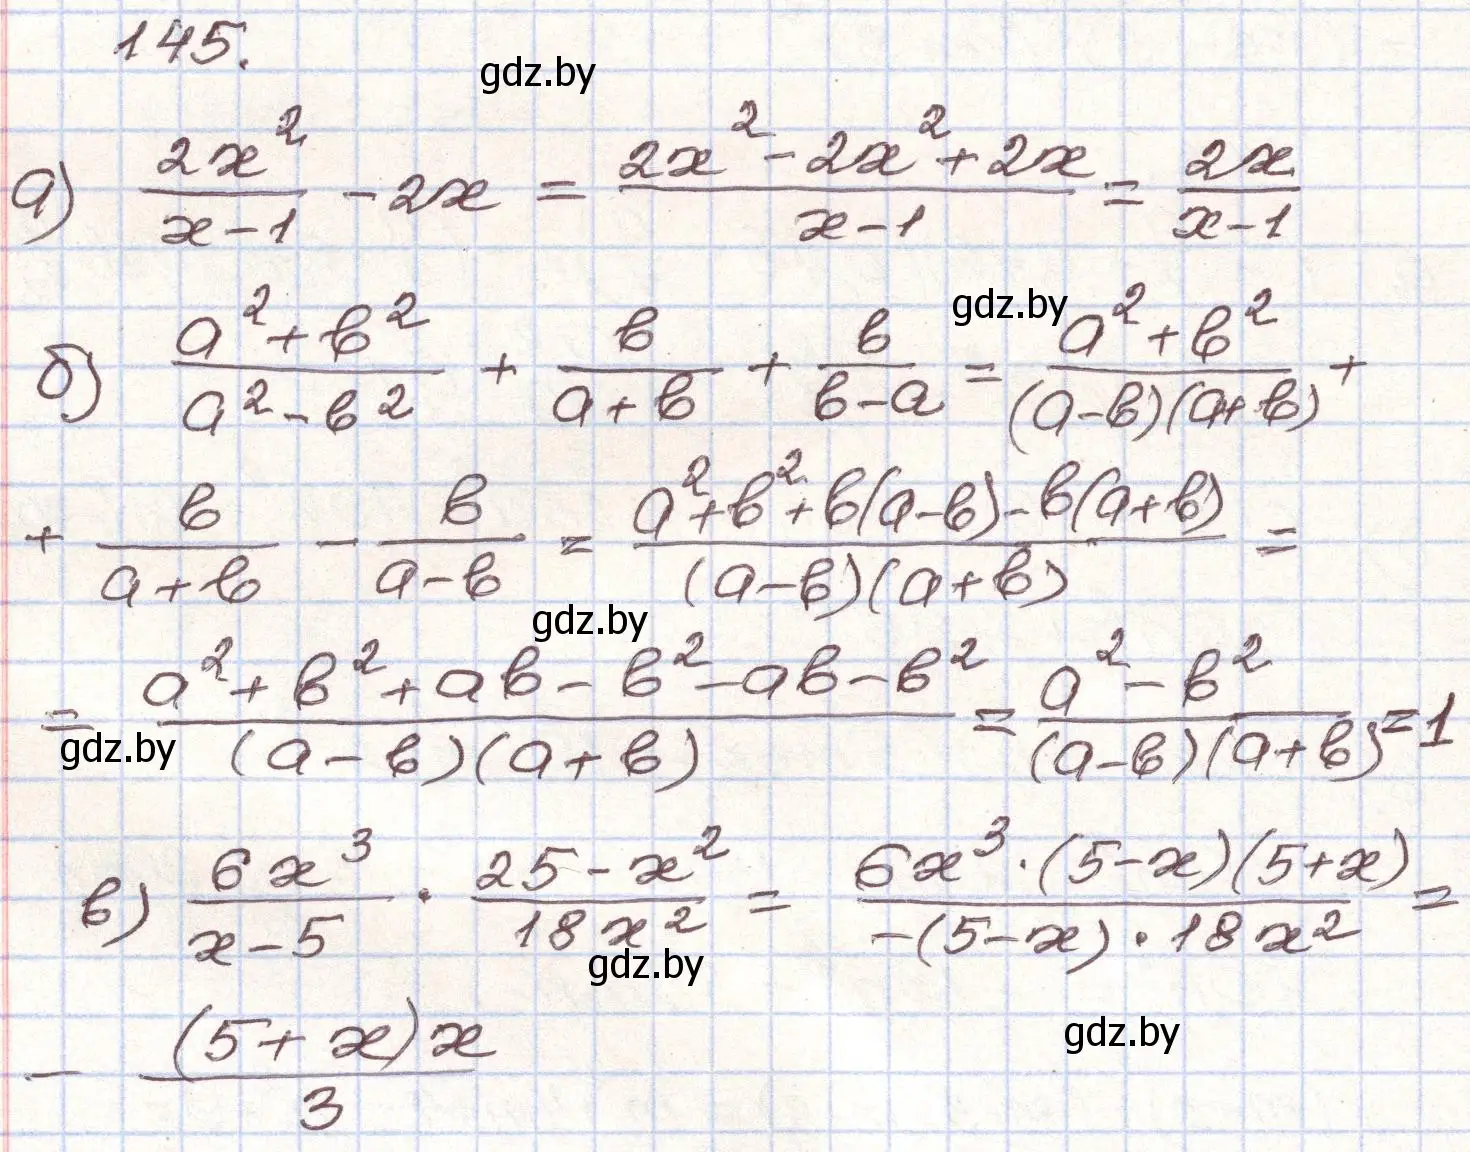 145.
gdz.by
а) \frac{2x^2}{x-1} - 2x = \frac{2x^2 - 2x^2 + 2x}{x-1} = \frac{2x}{x-1}
gdz.by
б) \frac{a^2+b^2}{a^2-b^2} + \frac{b}{a+b} + \frac{b}{b-a} = \frac{a^2+b^2}{(a-b)(a+b)} +
+ \frac{b}{a+b} - \frac{b}{a-b} = \frac{a^2+b^2+b(a-b)-b(a+b)}{(a-b)(a+b)} =
gdz.by
= \frac{a^2+b^2+ab-b^2-ab-b^2}{(a-b)(a+b)} = \frac{a^2-b^2}{(a-b)(a+b)} = 1
gdz.by
в) \frac{6x^3}{x-5} · \frac{25-x^2}{18x^2} = \frac{6x^3·(5-x)(5+x)}{-(5-x)·18x^2} =
gdz.by
- \frac{(5+x)x}{3}
gdz.by